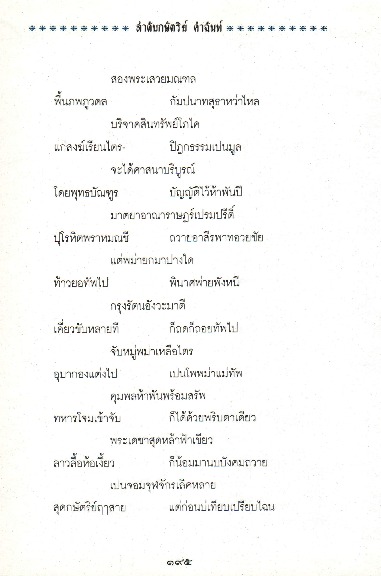 ลำดับกษัตริย์ คำฉันท์
สองพระเสวยมณฑล
พื้นภพภูวดล กัมปนาทสุธาหว่าไหล
บริจาคสินทรัพย์โภไค
แก่สงฆ์เรียนไตร- ปิฎกธรรมเปนมูล
จะได้ศาสนาบริบูรณ์
โดยพุทธบัณฑูร บัญญัติไว้ห้าพันปี
มาตยาอาณาราษฎร์เปรมปรีดิ์
ปุโรหิตพราหมณชี ถวายอาสิรพาทอวยชัย
แต่พม่ายกมาปางใด
ท้าวยอทัพไป พินาศพ่ายพังหนี
กรุงรัตนอังวะมาตี
เคี่ยวขับหลายที ก็ถดก็ถอยทัพไป
จับหมู่พม่าเหลือไตร
อุบากองแต่งไป เปนโพพม่าแม่ทัพ
คุมพลห้าพันพร้อมสรัพ
ทหารโจมเข้าจับ ก็ได้ด้วยพริบตาเดียว
พระเดชาสุดหล้าฟ้าเขียว
ลาวลื้อห้อเงี้ยว ก็น้อมมานบบังคมถวาย
เปนจอมจุฬจักรเลิศหลาย
สุดกษัตริย์ฦๅสาย แต่ก่อนบ่เทียบเปรียบไฉน
๑๙๕